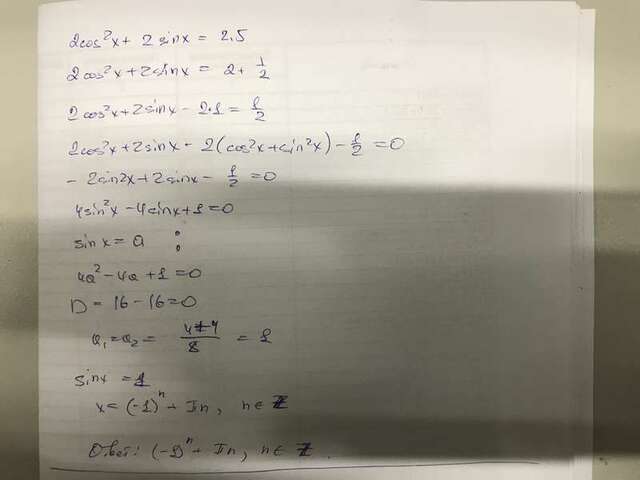 2cos²x + 2sinx = 2,5
2cos²x + 2sinx = 2 + 1/2
2cos²x + 2sinx - 2·1 = 1/2
2cos²x + 2sinx - 2(cos²x + sin²x) - 1/2 = 0
- 2sin²x + 2sinx - 1/2 = 0
4sin²x - 4sinx + 1 = 0
sinx = a ;
4a² - 4a + 1 = 0
D = 16 - 16 = 0
a₁ = a₂ = / 8 = 1
sinx = 1
x = (-1)ⁿ + πn, n ∈ Z
Ответ: (-1)ⁿ + πn, n ∈ Z.